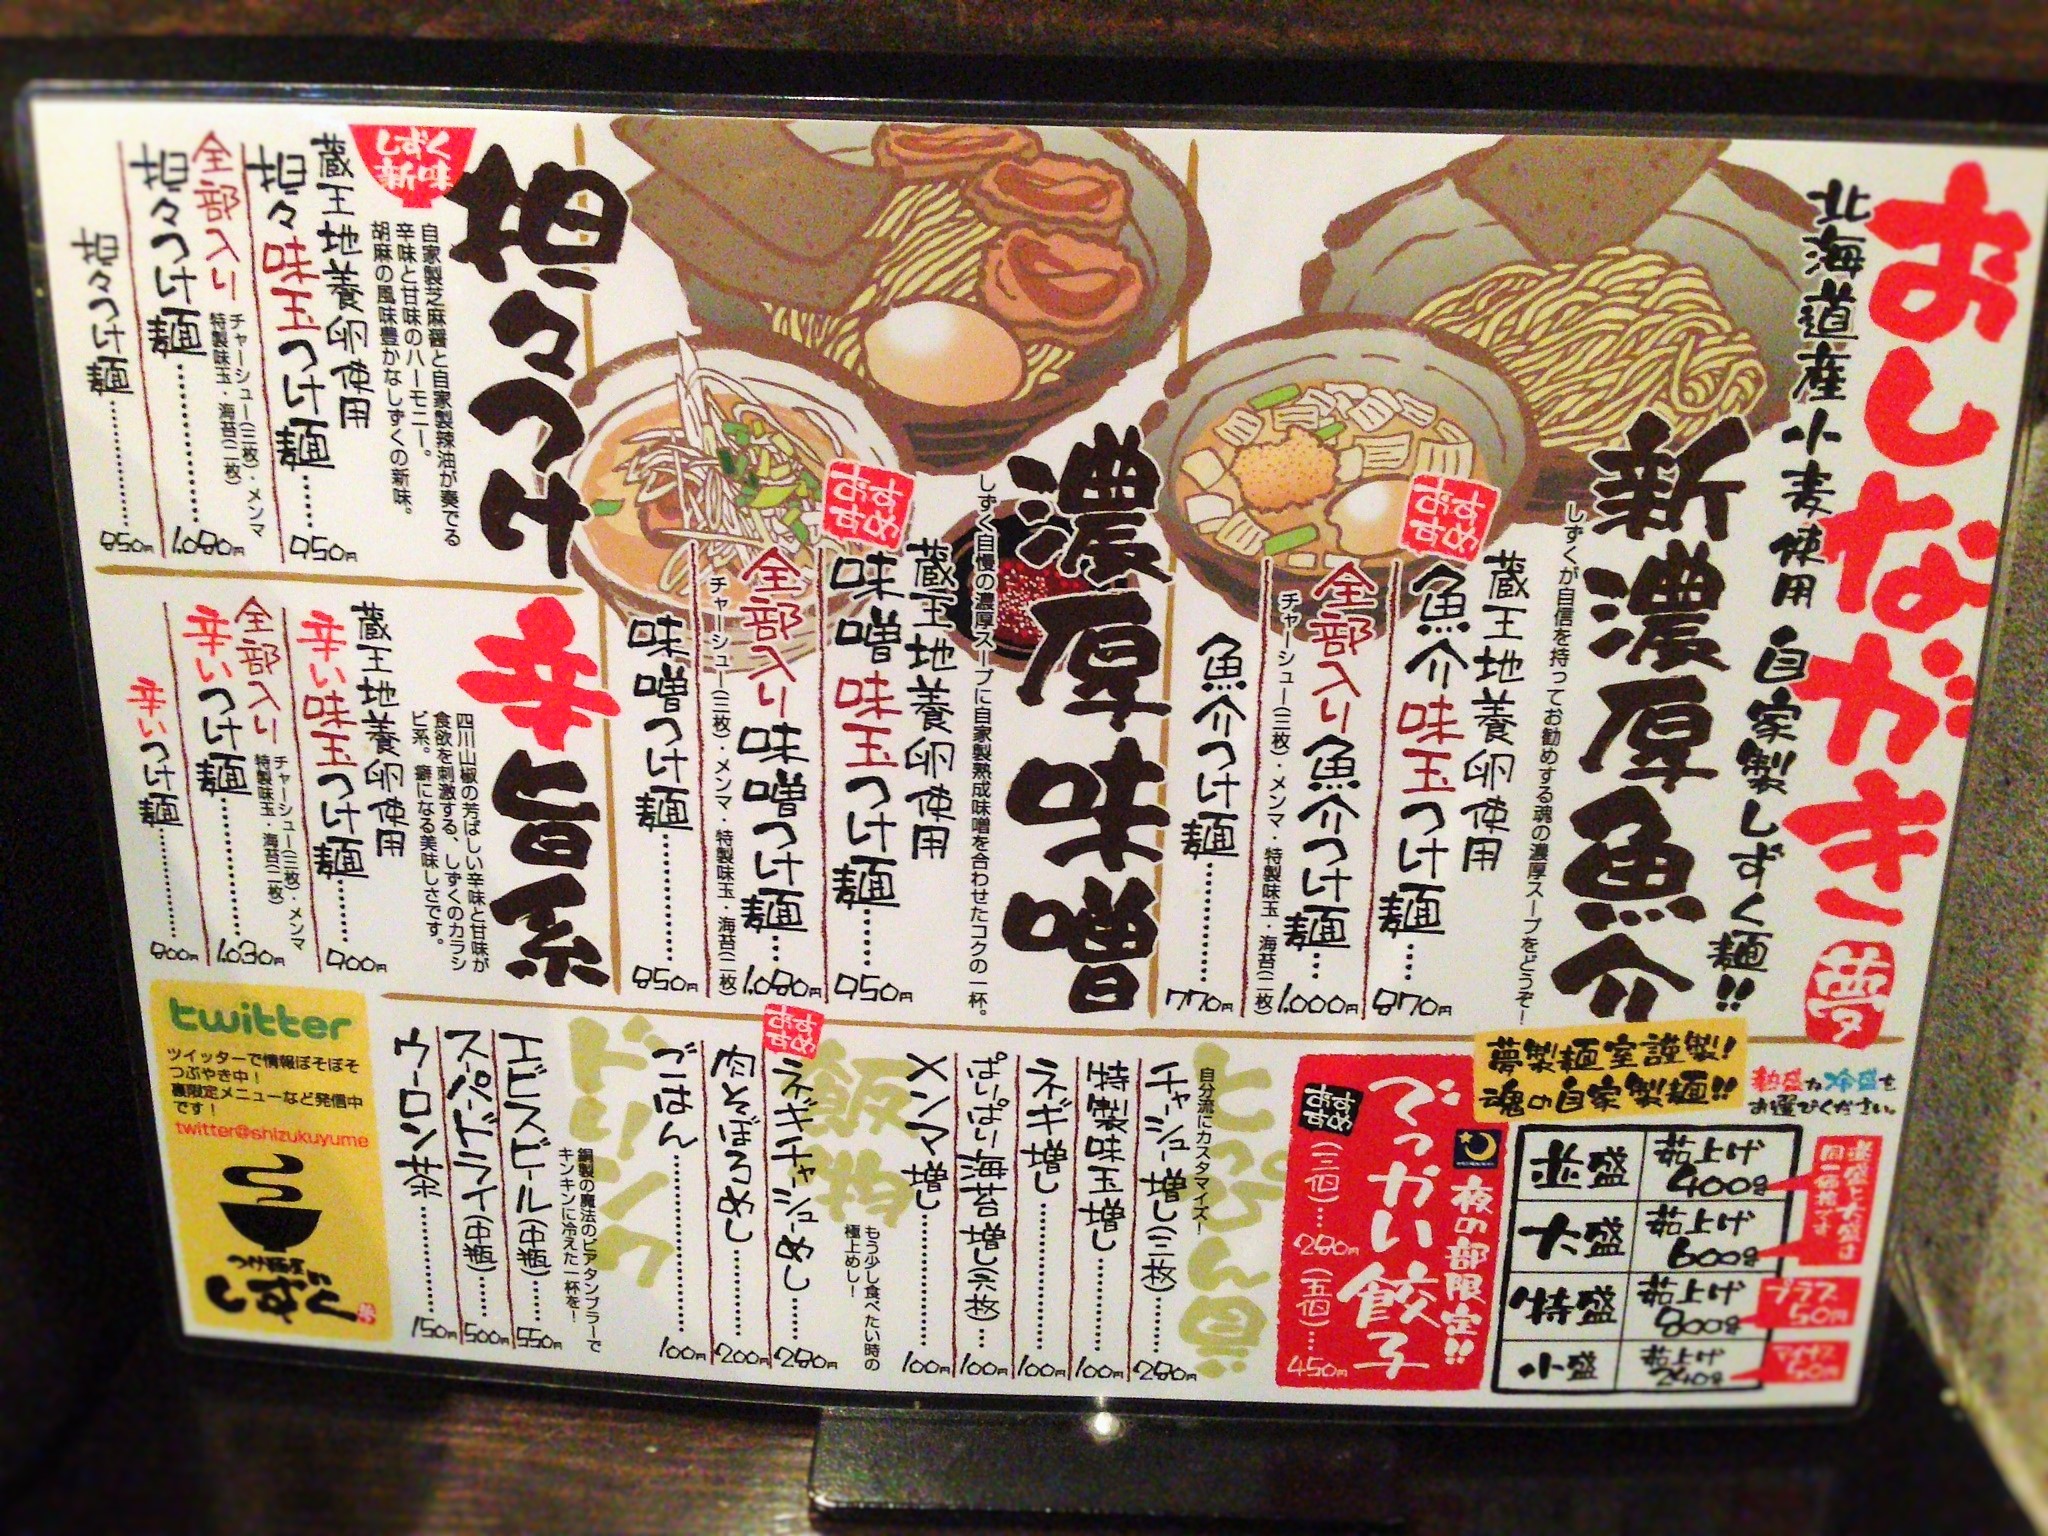 おしながき 夢
北海道産小麦使用 自家製しずく麺!!
新濃厚魚介
しずくが自信を持ってお勧めする魂の濃厚スープをどうぞ!
おすすめ
蔵王地養卵使用
魚介味玉つけ麺……870円
全部入り魚介つけ麺…1,000円
チャーシュー(三枚)・メンマ・特製味玉・海苔(二枚)
魚介つけ麺……770円
濃厚味噌
しずく自慢の濃厚スープに自家製熟成味噌を合わせたコクの一杯。
おすすめ
蔵王地養卵使用
味噌味玉つけ麺……950円
全部入り味噌つけ麺…1,080円
チャーシュー(三枚)・メンマ・特製味玉・海苔(二枚)
味噌つけ麺……850円
担々つけ
新味しずく
自家製芝麻醤と自家製辣油が奏でる
辛味と甘味のハーモニー。
胡麻の風味豊かなしずくの新味。
蔵王地養卵使用
担々味玉つけ麺……950円
全部入り
担々つけ麺……1,080円
チャーシュー(三枚)・メンマ
特製味玉・海苔(二枚)
担々つけ麺……850円
辛旨系
四川山椒の芳ばしい辛味と甘味が
食欲を刺激する、しずくのカラシ
ビ系。癖になる美味しさです。
蔵王地養卵使用
辛い味玉つけ麺……900円
全部入り
辛いつけ麺……1,030円
チャーシュー(三枚)・メンマ
特製味玉・海苔(二枚)
辛いつけ麺……800円
夢製麺室謹製!
魂の自家製麺!!
熱盛か冷盛を
お選びください。
並盛 茹上げ400g
大盛 茹上げ600g
並盛と大盛は
同一価格です
特盛 茹上げ800g
プラス
50円
小盛 茹上げ240g
マイナス
夜の部限定!!
でっかい餃子
おすすめ
(三個)…280円
(五個)…450円
とっぴん具
自分流にカスタマイズ!
チャーシュー増し(三枚)……280円
特製味玉増し……100円
ネギ増し……100円
ぱりぱり海苔増し(六枚)…100円
メンマ増し……100円
飯物
もう少し食べたい時の
極上めし!
おすすめ
ネギチャーシューめし……280円
肉そぼろめし……200円
ごはん……100円
ドリンク
銅製の魔法のビアタンブラーで
キンキンに冷えた一杯を!
エビスビール(中瓶)……550円
スーパードライ(中瓶)……500円
ウーロン茶……150円
twitter
ツイッターで情報ぼそぼそ
つぶやき中!
裏限定メニューなど発信中
です!
twitter@shizukuyume
つけ麺屋
しずく